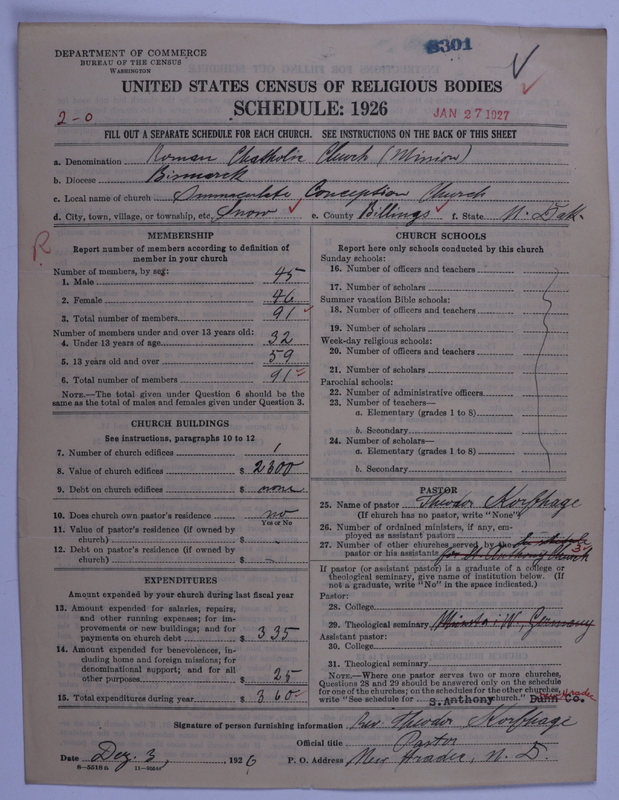 3301
DEPARTMENT OF COMMERCE
BUREAU OF THE CENSUS
WASHINGTON
UNITED STATES CENSUS OF RELIGIOUS BODIES
SCHEDULE: 1926
2-0
JAN 27 1927
FILL OUT A SEPARATE SCHEDULE FOR EACH CHURCH. SEE INSTRUCTIONS ON THE BACK OF THIS SHEET
a. Denomination Roman Chatholic Church (Mission)
b. Diocese Bismarck
c. Local name of church Immaculate Conception Church
d. City, town, village, or township, etc. Snow e. County Billings f. State N. Dak.
R
MEMBERSHIP
Report number of members according to definition of
member in your church
Number of members, by sex:
1. Male 45
2. Female 46
3. Total number of members 91
Number of members under and over 13 years old:
4. Under 13 years of age 32
5. 13 years old and over 59
6. Total number of members 91
NOTE.—The total given under Question 6 should be
same as the total of males and females given under Question 3.
CHURCH BUILDINGS
See instructions, paragraphs 10 to 12
7. Number of church edifices 1
8. Value of church edifices $ 2300
9. Debt on church edifices $ none
10. Does church own pastor's residence no
Yes or No
11. Value of pastor's residence (if owned by
church) $
12. Debt on pastor's residence (if owned by
church) $
EXPENDITURES
Amount expended by your church during last fiscal year
13. Amount expended for salaries, repairs,
and other running expenses; for im-
provements or new buildings; and for
payments on church debt $ 335
14. Amount expended for benevolences, in-
cluding home and foreign missions; for
denominational support; and for all
other purposes $ 25
15. Total expenditures during year $ 360
CHURCH SCHOOLS
Report here only schools conducted by this church
Sunday schools:
16. Number of officers and teachers
17. Number of scholars
Summer vacation Bible schools:
18. Number of officers and teachers
19. Number of scholars
Week-day religious schools:
20. Number of officers and teachers
21. Number of scholars
Parochial schools:
22. Number of administrative officers
23. Number of teachers—
a. Elementary (grades 1 to 8)
b. Secondary
24. Number of scholars—
a. Elementary (grades 1 to 8)
b. Secondary
PASTOR
25. Name of pastor Theodor Korphage
(If church has no pastor, write "None")
26. Number of ordained ministers, if any, em-
ployed as assistant pastors
27. Number of other churches served by the
pastor or his assistants for St. Anthony Church 3
If pastor (or assistant pastor) is a graduate of a college or
theological seminary, give name of institution below. (If
not a graduate, write "No" in the space indicated.)
Pastor:
28. College
29. Theological seminary Münster i W, Germany
Assistant pastor:
30. College
31. Theological seminary
NOTE.—Where one pastor serves two or more churches,
Questions 28 and 29 should be answered only on the schedule
for one of the churches; on the schedules for the other churches,
write "See schedule for S. Anthony church." New Hradec Dunn Co.
Signature of person furnishing information Rev. Theodor Korphage
Official title Pastor
Date Dez. 3, 1926 P. O. Address New Hradec, N. D.
8—5218a